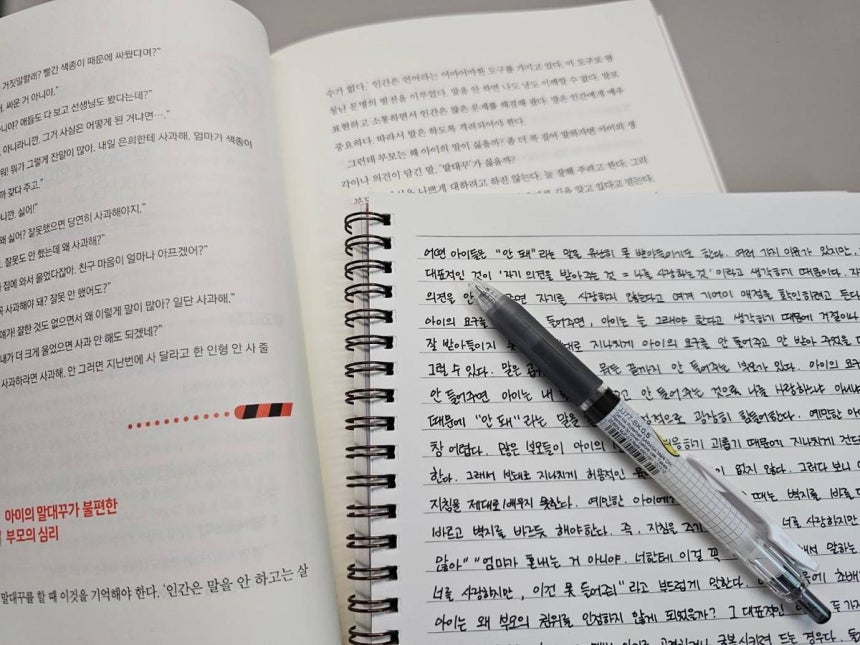 거짓말할래? 빨간 색종이 때문에 싸웠다며?"
싸운 거 아니야."
아니야? 애들도 다 보고 선생님도 봤다는데?"
아니라니깐. 그거 사실은 어떻게 된 거냐면…."
뭐가 그렇게 잔말이 많아. 내일 은희한테 사과해. 엄마가 색종이
갖다 주고."
싫어!"
왜 싫어? 잘못했으면 당연히 사과해야지."
잘못도 안 했는데 왜 사과해?"
집에 와서 울었다잖아. 친구 마음이 얼마나 아프겠어?"
사과해야 돼? 잘못 안 했어도?"
잘한 것도 없으면서 왜 이렇게 말이 많아? 일단 사과해."
내가 더 크게 울었으면 사과 안 해도 되겠네?"
사과하라면 사과해. 안 그러면 지난번에 사 달라고 한 인형 안 사 줄
아이의 말대꾸가 불편한
부모의 심리
말대꾸를 할 때 이것을 기억해야 한다. '인간은 말을 안 하고는 살
수가 없다.' 인간은 언어라는 어마어마한 도구를 가지고 있다. 이 도구로 엄
청난 문명의 발전을 이루었다. 말을 안 하면 나도 남도 이해할 수 없다. 말로
표현하고 소통하면서 인간은 많은 문제를 해결해 왔다. 말은 인간에게 매우
중요하다. 따라서 말은 하도록 격려되어야 한다.
그런데 부모는 왜 아이의 말이 싫을까? 좀 더 꼭 집어 말하자면 아이의 생
각이나 의견이 담긴 말, '말대꾸'가 싫을까?
나쁘게 대하려고 하진 않는다. 늘 잘해 주려고 한다. 그러
어떤 아이들은 "안 돼"라는 말을 유난히 못 받아들이기도 한다. 여러 가지 이유가 있지만,
대표적인 것이 '자기 의견을 받아주는 것 = 나를 사랑하는 것'이라고 생각하기 때문이다.
의견을 안 면 자기를 사랑하지 않는다고 여겨 기어이 애정을 확인하려고 든다.
아이의 요구를 들어주면, 아이는 늘 그래야 한다고 생각하기 때문에 거절이나
잘 받아들이지 대로 지나치게 아이의 요구를 안 들어주고 안 받아 주었을 때
그럴 수 있다. 끝까지 안 들어주는 부모가 있다. 아이의 요구
안 들어주면, 아이는 내 고 안 들어주는 것으로 나를 사랑하느냐 아니냐
때문에 "안 돼"라는 말을 정적으로 굉장히 힘들어한다. 예민한 아
참 어렵다. 많은 부모들이 아이의 하기 괴롭기 때문에 지나치게
한다. 그래서 반대로 지나치게 허용적인 이 없지 않다. 그러다 보니
지침을 제대로 배우지 못한다. 예민한 아이에게 때는 벽지를 바를
바르고 벽지를 바르듯 해야 한다. 즉, 지침을 주기 너를 사랑하지만
않아" "엄마가 혼내는 거 아니야. 너한테 이걸 꼭 해서 말하는
너를 사랑하지만, 이건 못 들어줘!"라고 부드럽게 말한다.
아이는 왜 부모의 권위를 인정하지 않게 되었을까? 그 대표적인 두 가지